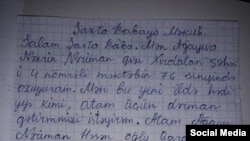 Şaxta Babaya Məktub.
Salam Şaxta Baba. Mən Ağayeva
Nəzrin Nəriman qızı Xırdalan şəhəri
4 nömrəli məktəbin 7б sinfində
oxuyuram. Mən bu yeni ildə hədi
yyə kimi, atam üçün dərman
gətirmənizi istəyirəm. Atam Ağayev
Nəriman oğlu
Social Media